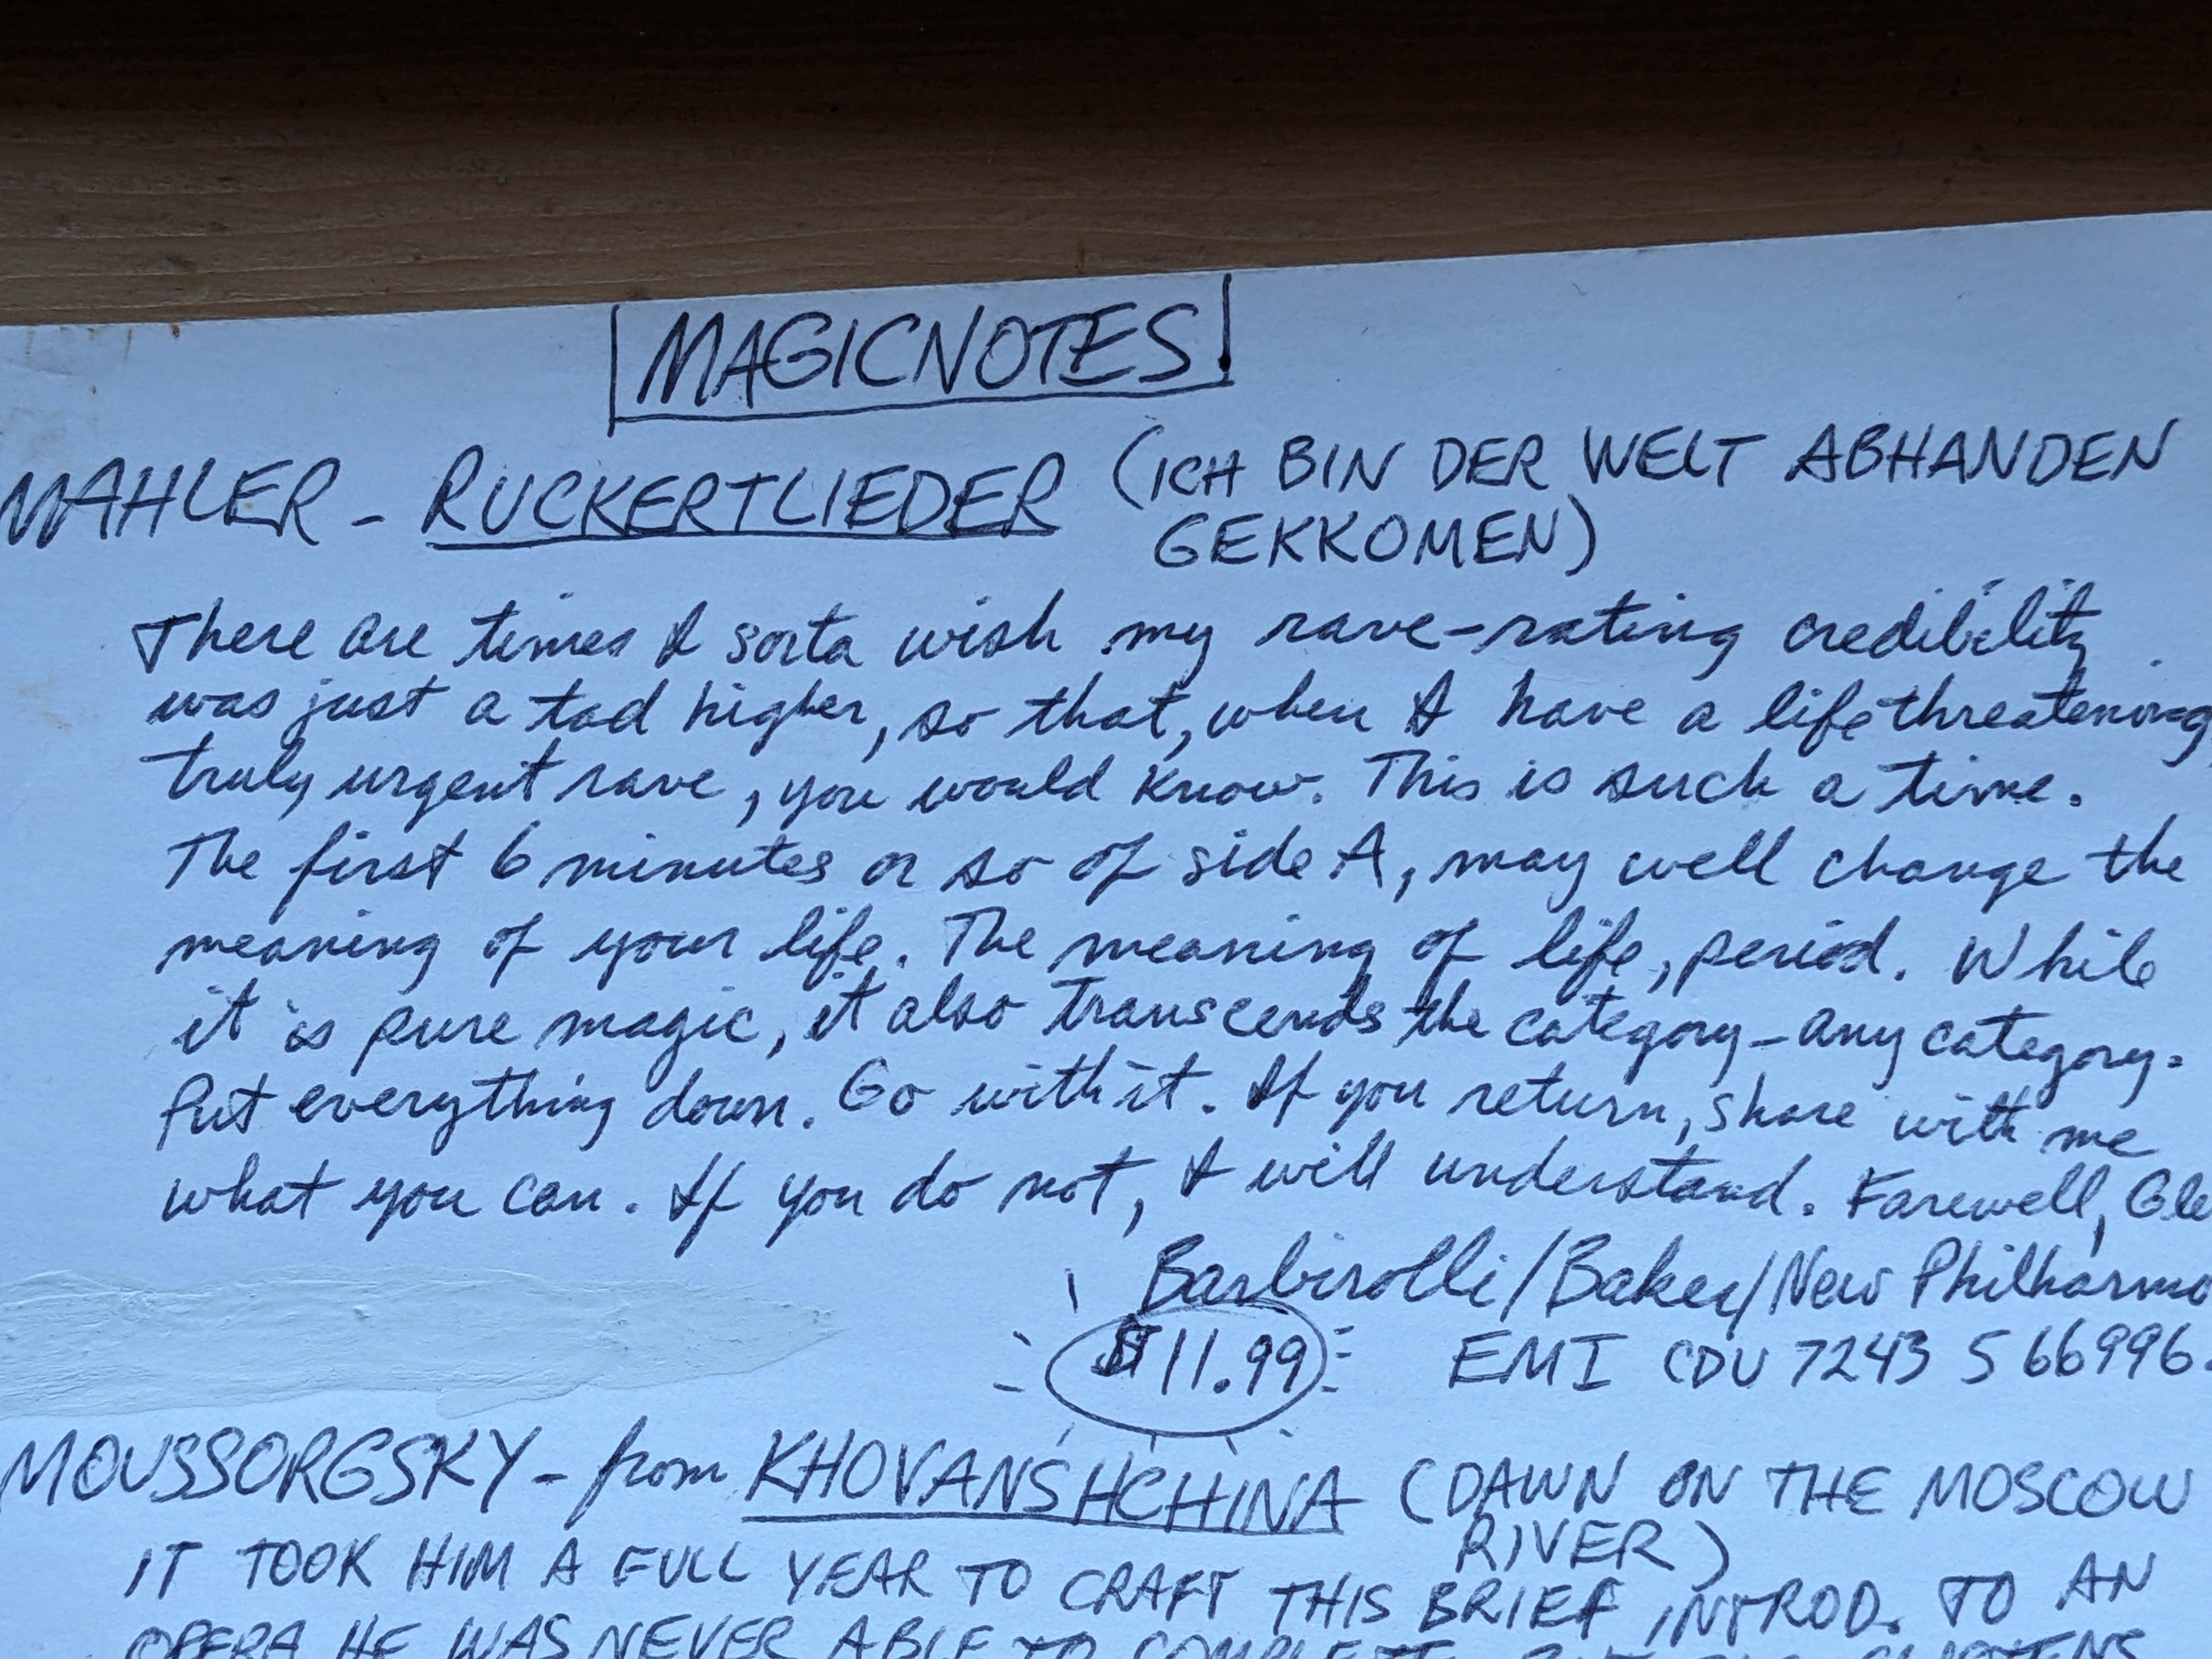 MAGICNOTES!
MAHLER - RUCKERTLIEDER (ICH BIN DER WELT ABHANDEN
GEKKOMEN)
There are times I sorta wish my rave-rating credibility
was just a tad higher, so that, when I have a life threatening,
truly urgent rave, you would know. This is such a time.
The first 6 minutes or so of side A, may well change the
meaning of your life. The meaning of life, period. While
it is pure magic, it also transcends the category - any category.
Put everything down. Go with it. If you return, share with me
what you can. If you do not, I will understand. Farewell, Gle
Barbirolli/Baker/New Philharmo
$11.99 EMI CDU 7243 5 66996.
MOUSSORGSKY - from KHOVANSHCHINA (DAWN ON THE MOSCOW
RIVER)
IT TOOK HIM A FULL YEAR TO CRAFT THIS BRIEF INTROD. TO AN
OPERA HE WAS NEVER ABLE TO COMPLETE